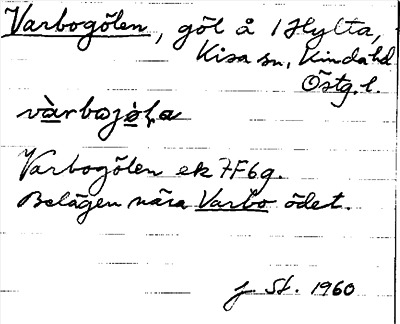 Varbogölen, göl å 1 Hylta,
Kisa sn, Kinda hd
Östg. l.
vàrbojø̀l̥a
Varbogölen ek 7F6g.
Belägen nära Varbo ödet.
J. St. 1960